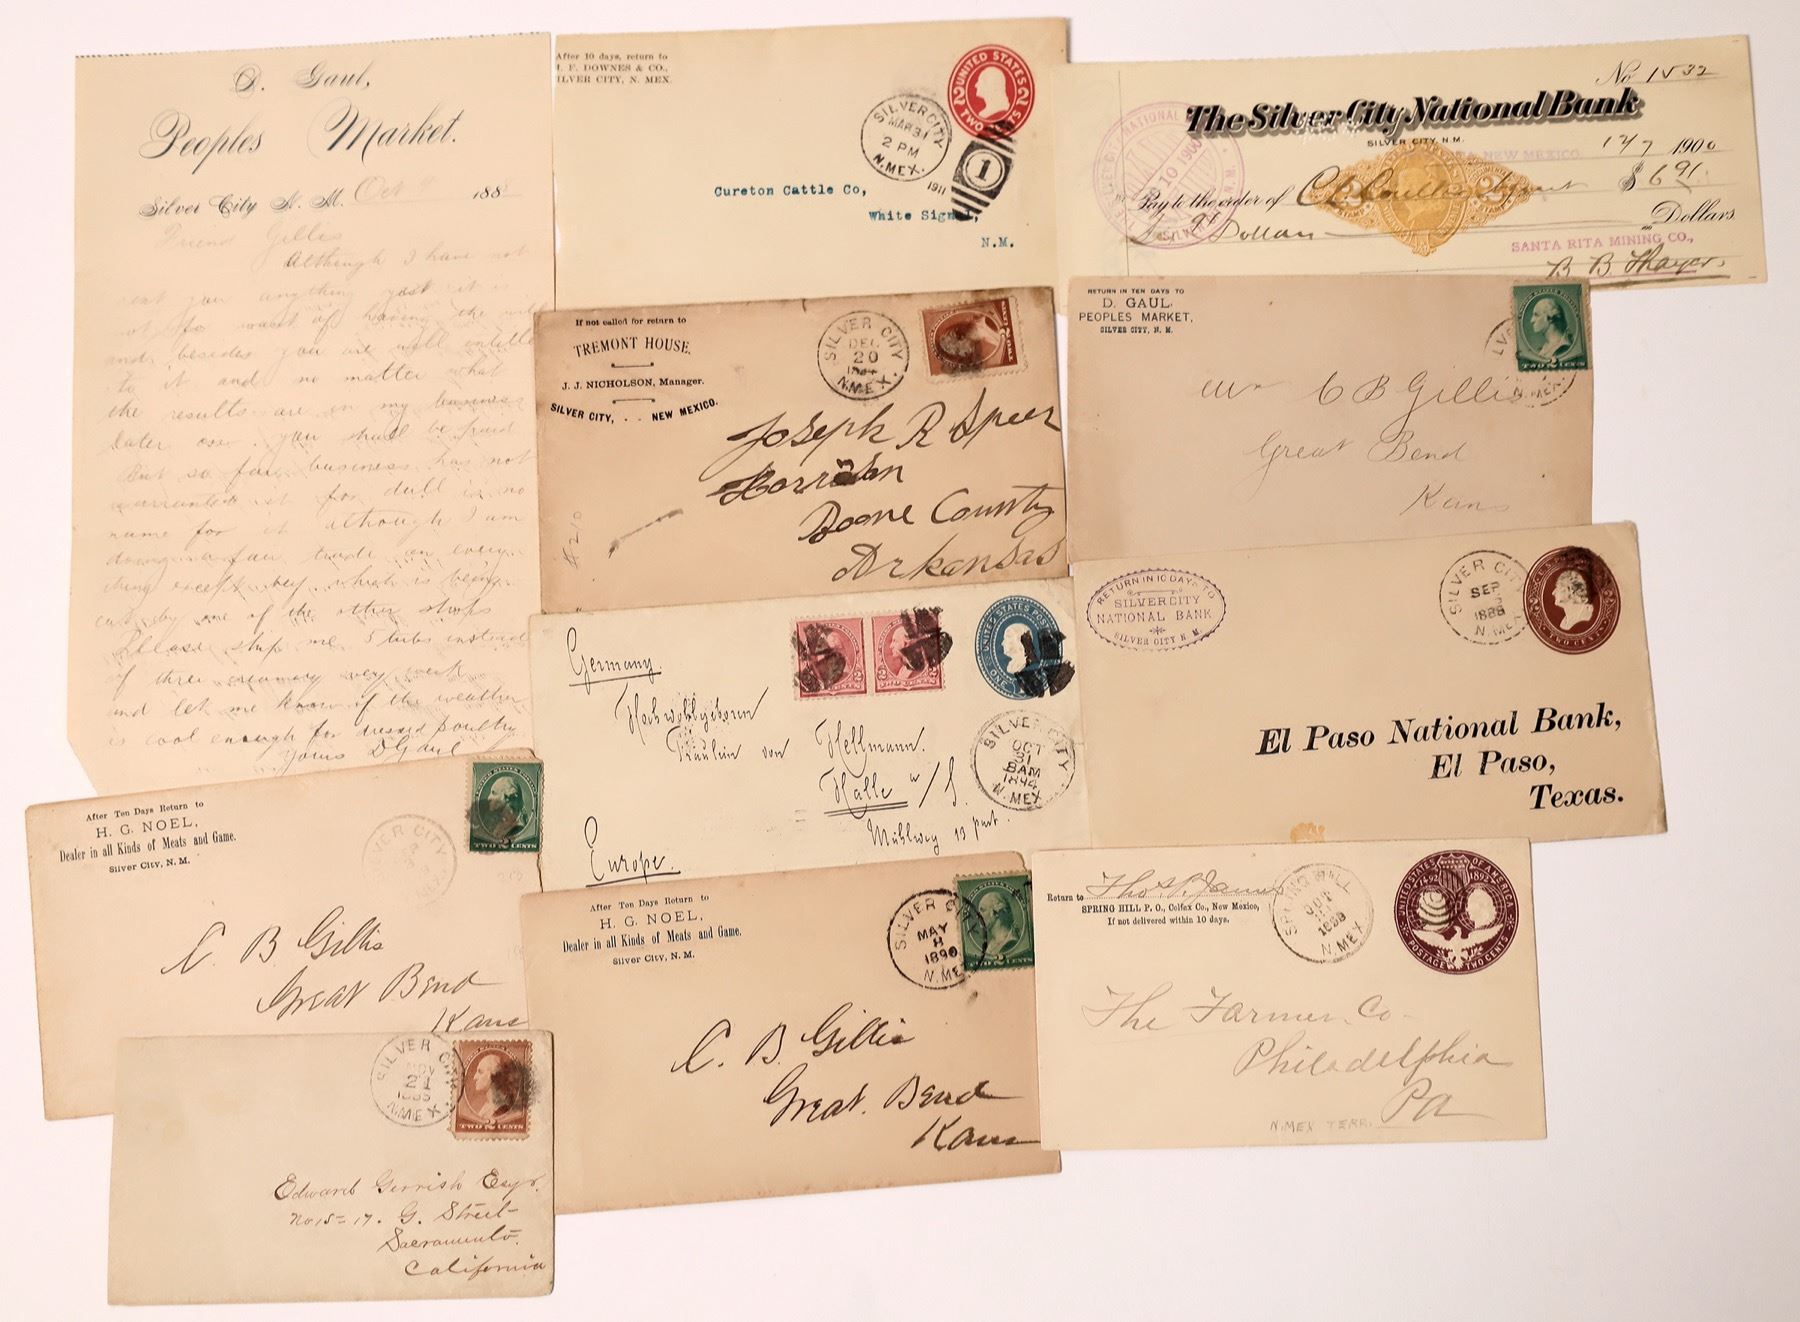 D. Gaul,
Peoples Market.
Silver City N. M. Oct 9 188
Friend Gillis
Although I have not
sent you anything yet it is
not for want of having the will
and besides you are well intitled
to it and no matter what
the results are in my business
later on you shall be paid
But so far business has not
warranted it for dull is no
name for it although I am
doing a fair trade on every
thing except beef which is being
cut by one of the other shops
Please ship me 5 tubs instead
of three creamery every week
and let me know if the weather
is cool enough for dressed poultry
Yours D Gaul
After 10 days, return to
F. DOWNES & CO.,
SILVER CITY, N. MEX.
SILVER CITY
MAR 31
2 PM
N. MEX.
1911
1
UNITED STATES
2 TWO CENTS 2
Cureton Cattle Co,
White Signal,
N.M.
No 1532
The Silver City National Bank
SILVER CITY, N.M.
NEW MEXICO,
12/7 1900
Pay to the order of
$6 91
Dollars
SANTA RITA MINING CO.,
B B Thayer
If not called for return to
TREMONT HOUSE.
J. J. NICHOLSON, Manager.
SILVER CITY, . . NEW MEXICO.
SILVER CITY
DEC
20
N. MEX.
Joseph R Speer
Harrison
Boone County
Arkansas
$2.10
RETURN IN TEN DAYS TO
D. GAUL,
PEOPLES MARKET,
SILVER CITY, N. M.
TWO CENTS
N. MEX.
Mr C B Gillis
Great Bend
Kans
Germany.
Hochwohlgeboren
Fräulein von Hellmann.
Halle a/S.
Mühlweg 13 part.
Europe.
2 TWO CENTS 2
UNITED STATES POSTAGE
SILVER CITY
OCT
31
8AM
1894
N. MEX.
RETURN IN 10 DAYS TO
SILVER CITY
NATIONAL BANK
SILVER CITY N. M.
SILVER CITY
SEP
1888
N. MEX.
TWO CENTS
El Paso National Bank,
El Paso,
Texas.
After Ten Days Return to
H. G. NOEL,
Dealer in all Kinds of Meats and Game.
Silver City, N. M.
TWO CENTS
C. B. Gillis
Great Bend
Kans
After Ten Days Return to
H. G. NOEL,
Dealer in all Kinds of Meats and Game.
Silver City, N. M.
SILVER CITY
MAY
8
1890
N. MEX.
TWO 2 CENTS
C. B. Gillis
Great Bend
Kans
Return to Thos P. James
SPRING HILL P. O., Colfax Co., New Mexico,
If not delivered within 10 days.
SPRING HILL
N. MEX
UNITED STATES OF AMERICA
1492 1892
POSTAGE TWO CENTS
The Farmer Co
Philadelphia
Pa
N. MEX TERR.
SILVER CITY
NOV
N. MEX
TWO 2 CENTS
Edward Gerrish Esqr.
No 15 = 17. G. Street
Sacramento.
California